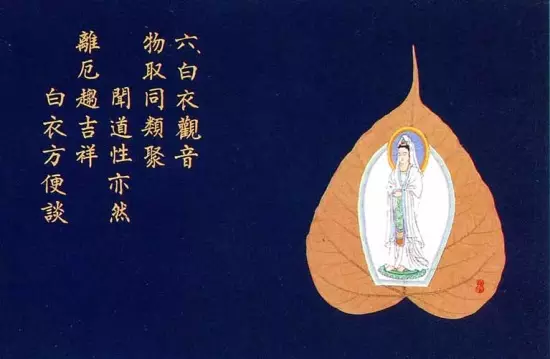 六、白衣觀音
物取同類聚
聞道性亦然
離厄趨吉祥
白衣方便談